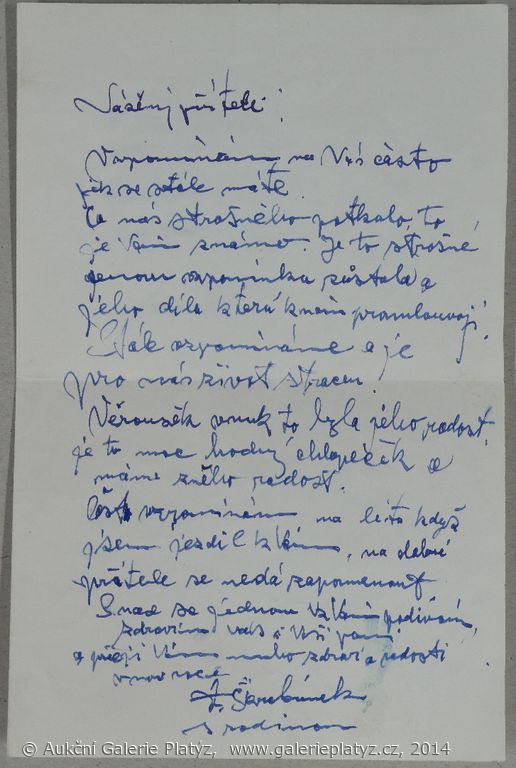 Vážený příteli!
Vzpomínám na Vás často
jak se stále máte
Co nás strašného potkalo to
je Vám známo. Je to strašné
jenom vzpomínka zůstala a
jeho díla která k nám promlouvají
Stále vzpomínáme a je
pro nás život stracen!
Věroušek vnuk to byla jeho radost,
je to moc hodný chlapéček a
máme z něho radost.
Často vzpomínám na léto když
jsem jezdil k Vám, na dobré
přátele se nedá zapomenout
Snad se jednom k Vám podívám,
zdravím Vás i Vaší paní
a přeji Vám mnoho zdraví a radosti
v nov roce
s rodinou
© Aukční Galerie Platýz, www.galerieplatyz.cz, 2014